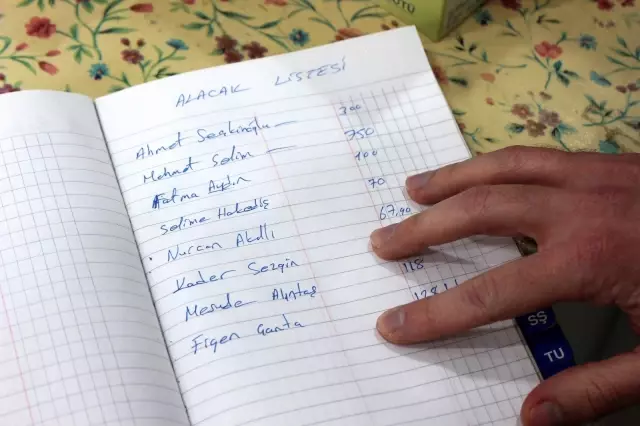 UTU
ALACAK LİSTESİ
Ahmet Seakinoğlu — 300
Mehmet Selim — 750
Fatma Aydın 100
Selime 70
Nurcan Akıllı 67,90
Kader Sezgin
Mesude Alıntaş 118
Figen Ganta
SŞ
TU